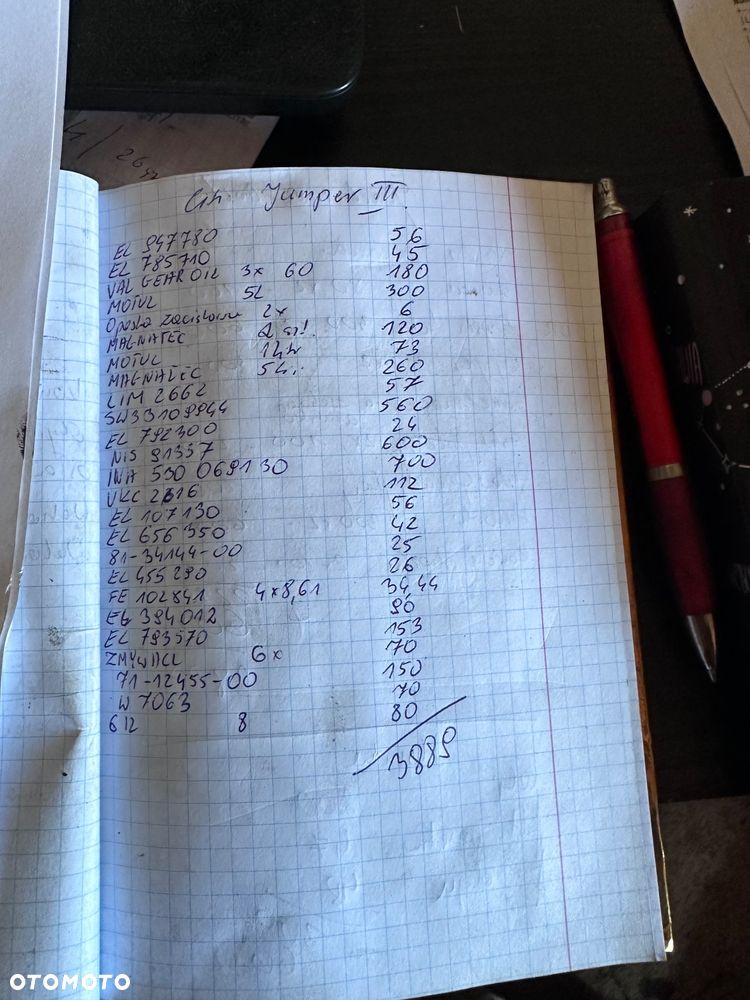 26
Cit. Jumper III.
EL 947780 56
EL 785710 45
VAL GEAR OIL 3x 60 180
MOTUL 5L 300
Opaska zaciskowa 2x 6
MAGNATEC 2 120
MOTUL 1L 73
MAGNATEC 5L 260
LIM 2662 57
SW33109944 560
EL 792300 24
NIS 91337 600
INA 530 0691 30 700
VKC 2216 112
EL 107130 56
EL 656350 42
81-34144-00 25
EL 455290 26
FE 102841 4x8,61 34,44
EL 394012 90
EL 793570 153
ZMYWACZ 6x 70
71-12455-00 150
W 7063 70
612 8 80
3889
OTOMOTO